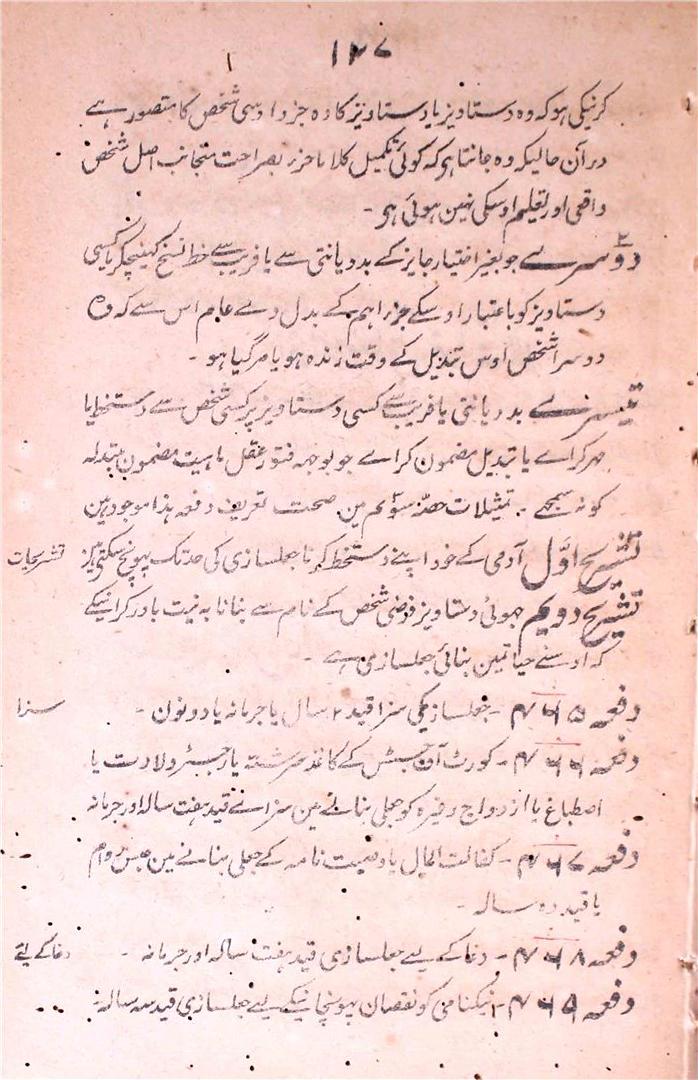 ۱۲۷
کرنیکی ہو کہ وہ دستاویز یا دستاویز کا وہ جزو اوسی شخص کا متصور ہے
در آن حالیکہ وہ جانتا ہو کہ کوئی تکمیل کلا یا جزء بصراحت منجانب اصل شخص
واقعی اور تعلیم اوسکی نہین ہوئی ہو۔
دوسرے جو بغیر اختیار جایز کے بددیانتی سے یا فریب سے خط نسخ کھینچکر یا کسی
دستاویز کو باعتبار اوسکے جزء اہم کے بدل دے عام اس سے کہ وہ
دوسرا شخص اوس تبدیل کے وقت زندہ ہو یا مر گیا ہو۔
تیسرے بددیانتی یا فریب سے کسی دستاویز پر کسی شخص سے دستخط یا
مہر کراے یا تبدیل مضمون کراے جو بوجہ فتور عقل ماہیت مضمون مبتدلہ
کو نہ سمجھے ۔ تمثیلات حصہ سوئم مین صحت تعریف دفعہ ہذا موجود ہین
تشریح اوّل آدمی کے خود اپنے دستخط کرنا جعلسازی کی حد تک پہونچ سکتی ہین
تشریحات
تشریح دویم جھوٹی دستاویز فرضی شخص کے نام سے بنانا بہ نیت باور کرانیکے
کہ اوسنے حیات مین بنائی جعلسازی ہے۔
دفعہ ۴۶۵۔ جعلسازیکی سزا قید ۲ سال یا جرمانہ یا دونون۔
سزا
دفعہ ۴۶۶۔ کورٹ آف جسٹس کے کاغذ سررشتہ یا رجسٹر ولادت یا
اصطباغ یا ازدواج وغیرہ کو جعلی بنانے مین سزاے قید ہفت سالہ اور جرمانہ
دفعہ ۴۶۷۔ کفالت المال یا وصیت نامہ کے جعلی بنانے مین حبس دوام
یا قید دہ سالہ۔
دفعہ ۴۶۸۔ دغا کے لیے جعلسازی قید ہفت سالہ اور جرمانہ۔
دغا کے لئے
دفعہ ۴۶۹۔ نیکنامی کو نقصان پہونچانیکے لیے جعلسازی قید سہ سالہ